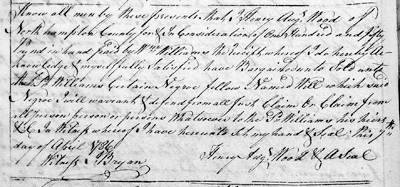 Know all men by these presents that I Henry Augs Wood of
Northampton County for & in Consideration of One hundred and fifty
pound in hand paid by Wm Williams the receipt whereof I do hereby Ac
knowledge & myself fully Satisfied have Bargained unto Sold unto
the Sd Williams Certain Negroe fellow Named Will which said
Negroe I will warrant & defend from all Just Claim or Claims from
all person person or persons Whatsoever to the Sd Williams his heirs
&C In Witness whereof I have hereunto Set my hand & Seal this 7th
day of April 1786
Witness J Bryan Henry Augs Wood & a Seal